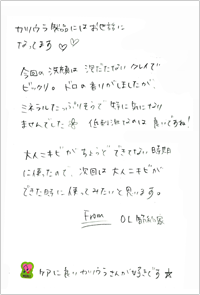 ガリウラ製品にはお世話に
なってます♡♡
今回の洗顔は泡だたないクレイで
ビックリ。ドロの香りがしましたが、
ミネラルたっぷりそうで特に気になり
ませんでした 低刺激なのは良いですね!
大人ニキビがちょうどできてない時期
に使ったので、次回は大人ニキビが
できた時に使ってみたいと思います。
From OL
ケアに良いガリウラさんが好きです☆